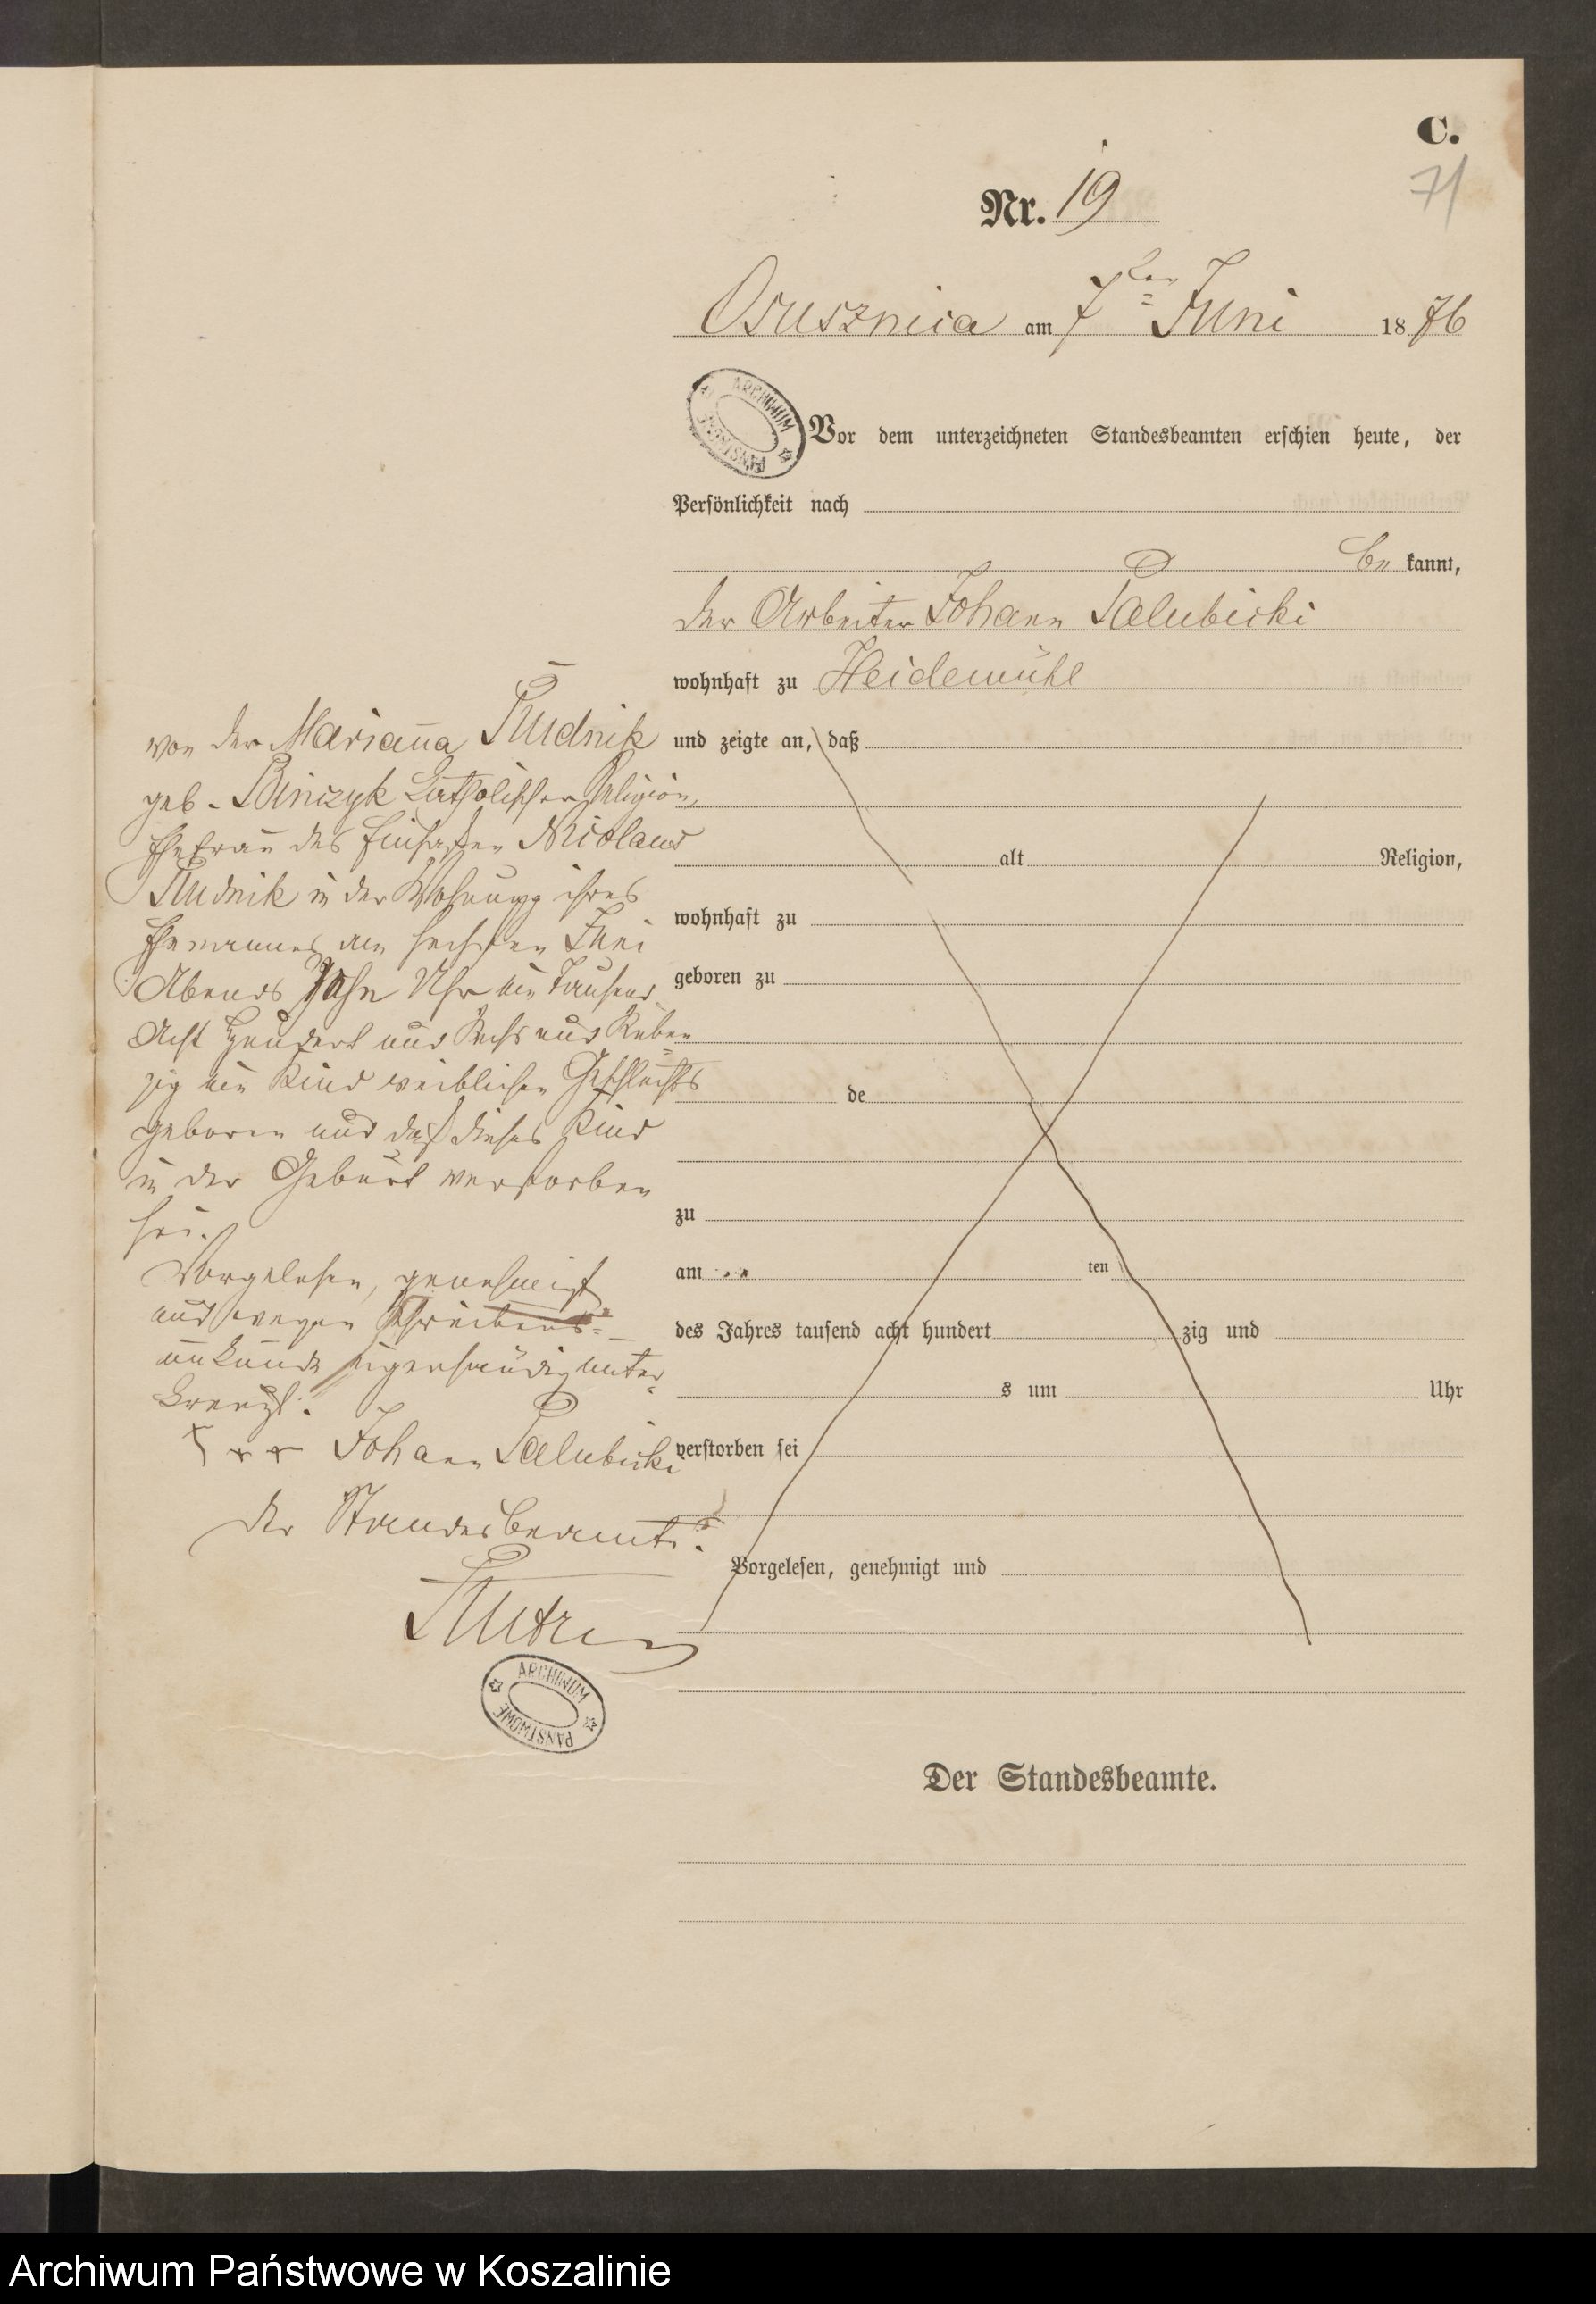 C.
71
Nr. 19
Osusznica am 7ten Juni 1876
ARCHIWUM PAŃSTWOWE
Vor dem unterzeichneten Standesbeamten erschien heute, der
Persönlichkeit nach
be kannt,
der Arbeiter Johann Palubicki
wohnhaft zu Heidemühl
und zeigte an, daß
alt Religion,
wohnhaft zu
geboren zu
de
zu
am ten
des Jahres tausend acht hundert zig und
s um Uhr
verstorben sei
Vorgelesen, genehmigt und
Der Standesbeamte.
von der Marianna Rudnik
geb. Binczyk katholischer Religion,
Ehefrau des Einsassen Nicolaus
Rudnik in der Wohnung ihres
Ehemannes am sechsten Juni
Abends Zehn Uhr ein Tausend
Acht Hundert und Sechs und Sieben=
zig ein Kind weiblichen Geschlechts
geboren und daß dieses Kind
in der Geburt verstorben
sei.
Vorgelesen, genehmigt
und wegen Schreibens=
unkunde eigenhändig unter=
kreuzt.
+++ Johann Palubicki
Der Standesbeamte.
ARCHIWUM PAŃSTWOWE
Archiwum Państwowe w Koszalinie